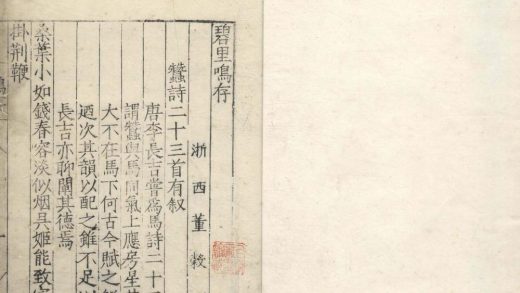 碧里鳴存
浙西董穀
蠶詩二十三首有叙
唐李長吉嘗爲馬詩二十三
謂蠶與馬同氣上應房星其
大不在馬下何古今賦之
迺次其韻以配之雖不足以
長吉亦聊闡其德焉
桑葉小如錢春容淡似烟吳姬能致
掛荆鞭